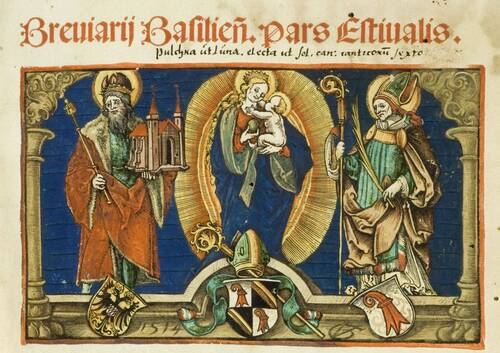 Breviarij Basilieñ. Pars Estivalis.
pulchra ut luna, electa ut sol. can: canticorū sexto
1514